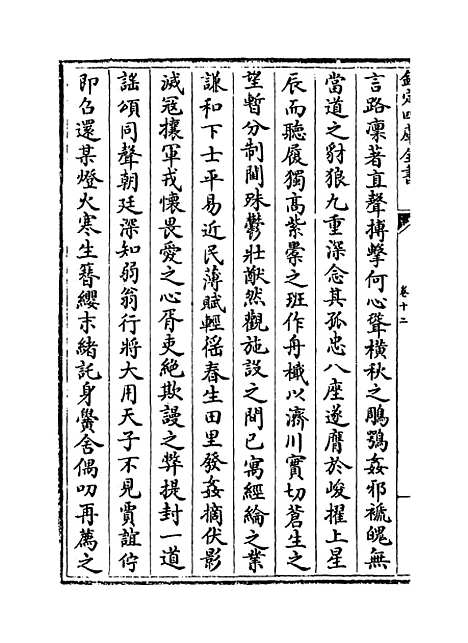 欽定四庫全書
卷十二
言路凜著直聲搏擊何心聳橫秋之鵰鶚姦邪褫魄無
當道之豺狼九重深念其孤忠八座遂膺於峻擢上星
辰而聽履獨高紫橐之班作舟檝以濟川實切蒼生之
望暫分制閫殊鬱壯猷然觀施設之間已寓經綸之業
謙和下士平易近民薄賦輕徭春生田里發姦摘伏影
滅冠攘軍戎懷畏愛之心胥吏絶欺謾之弊提封一道
謡頌同聲朝廷深知弱翁行將大用天子不見賈誼佇
即召還某燈火寒生簪纓末緒託身黌舍偶叨再薦之